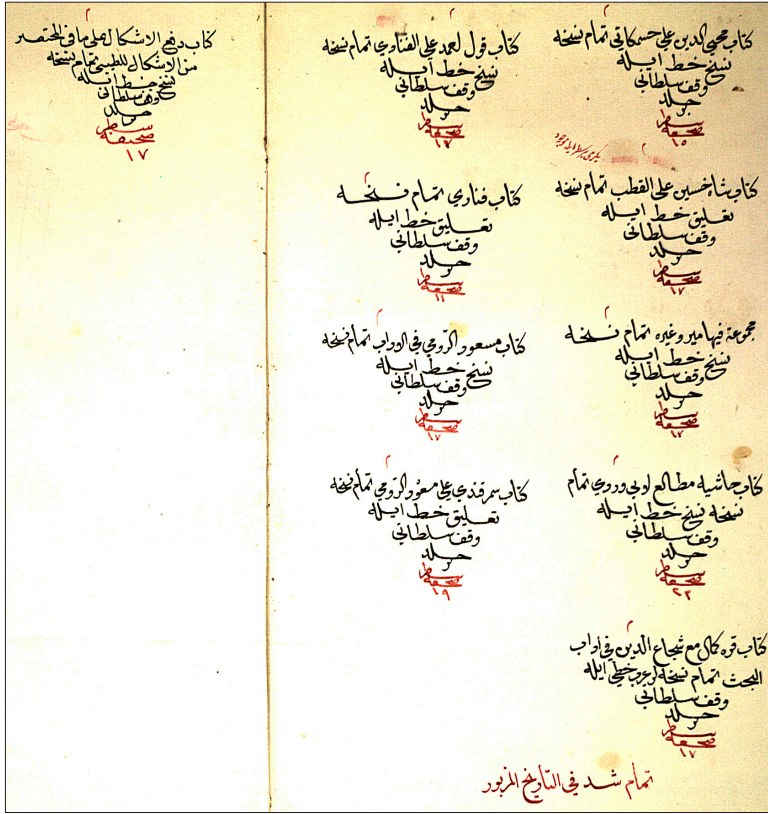 كتاب محيي الدين علي حسمكاتي تمام نسخه
نسخ خط ايله
وقف سلطاني
جلد
سطر
صحيفه
١٥
كتاب شاه حسين علي القطب تمام نسخه
تعليق خط ايله
وقف سلطاني
جلد
سطر
صحيفه
١٧
مجموعة فيها مير وغيره تمام نسخه
نسخ خط ايله
وقف سلطاني
جلد
سطر
صحيفه
١٧
كتاب حاشيه مطالع لوبي ودوي تمام
نسخه نسخ خط ايله
وقف سلطاني
جلد
سطر
صحيفه
٢٣
كتاب قره كمال مع شجاع الدين في اداب
البحث تمام نسخه عرب خطي ايله
وقف سلطاني
جلد
سطر
صحيفه
١٧
كتاب قول احمد علي الفناري تمام نسخه
نسخ خط ايله
وقف سلطاني
جلد
سطر
صحيفه
كتاب فناري تمام نسخه
تعليق خط ايله
وقف سلطاني
جلد
سطر
صحيفه
١١
كتاب مسعود الرومي في الاداب تمام نسخه
نسخ خط ايله
وقف سلطاني
جلد
سطر
صحيفه
١٧
كتاب سمرقندي علي مسعود الرومي تمام نسخه
تعليق خط ايله
وقف سلطاني
جلد
سطر
صحيفه
١٩
تمام شد في التاريخ المزبور
كتاب دفع الاشكال علي ما في المختصر
من الاشكال للطيبي تمام نسخه
نسخ خط ايله
وقف سلطاني
جلد
سطر
صحيفه
١٧